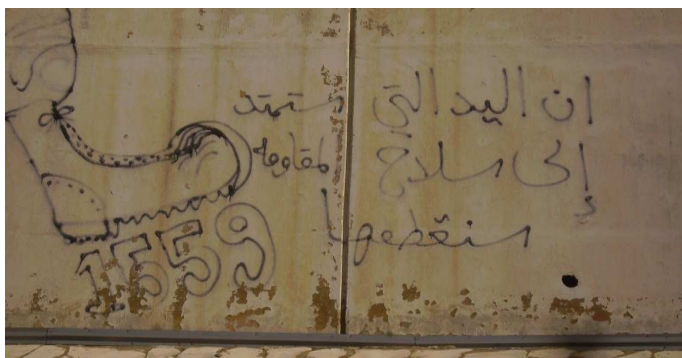 ان اليد التي ستمتد
إلى سلاح المقاومة
سنقطعها
1559